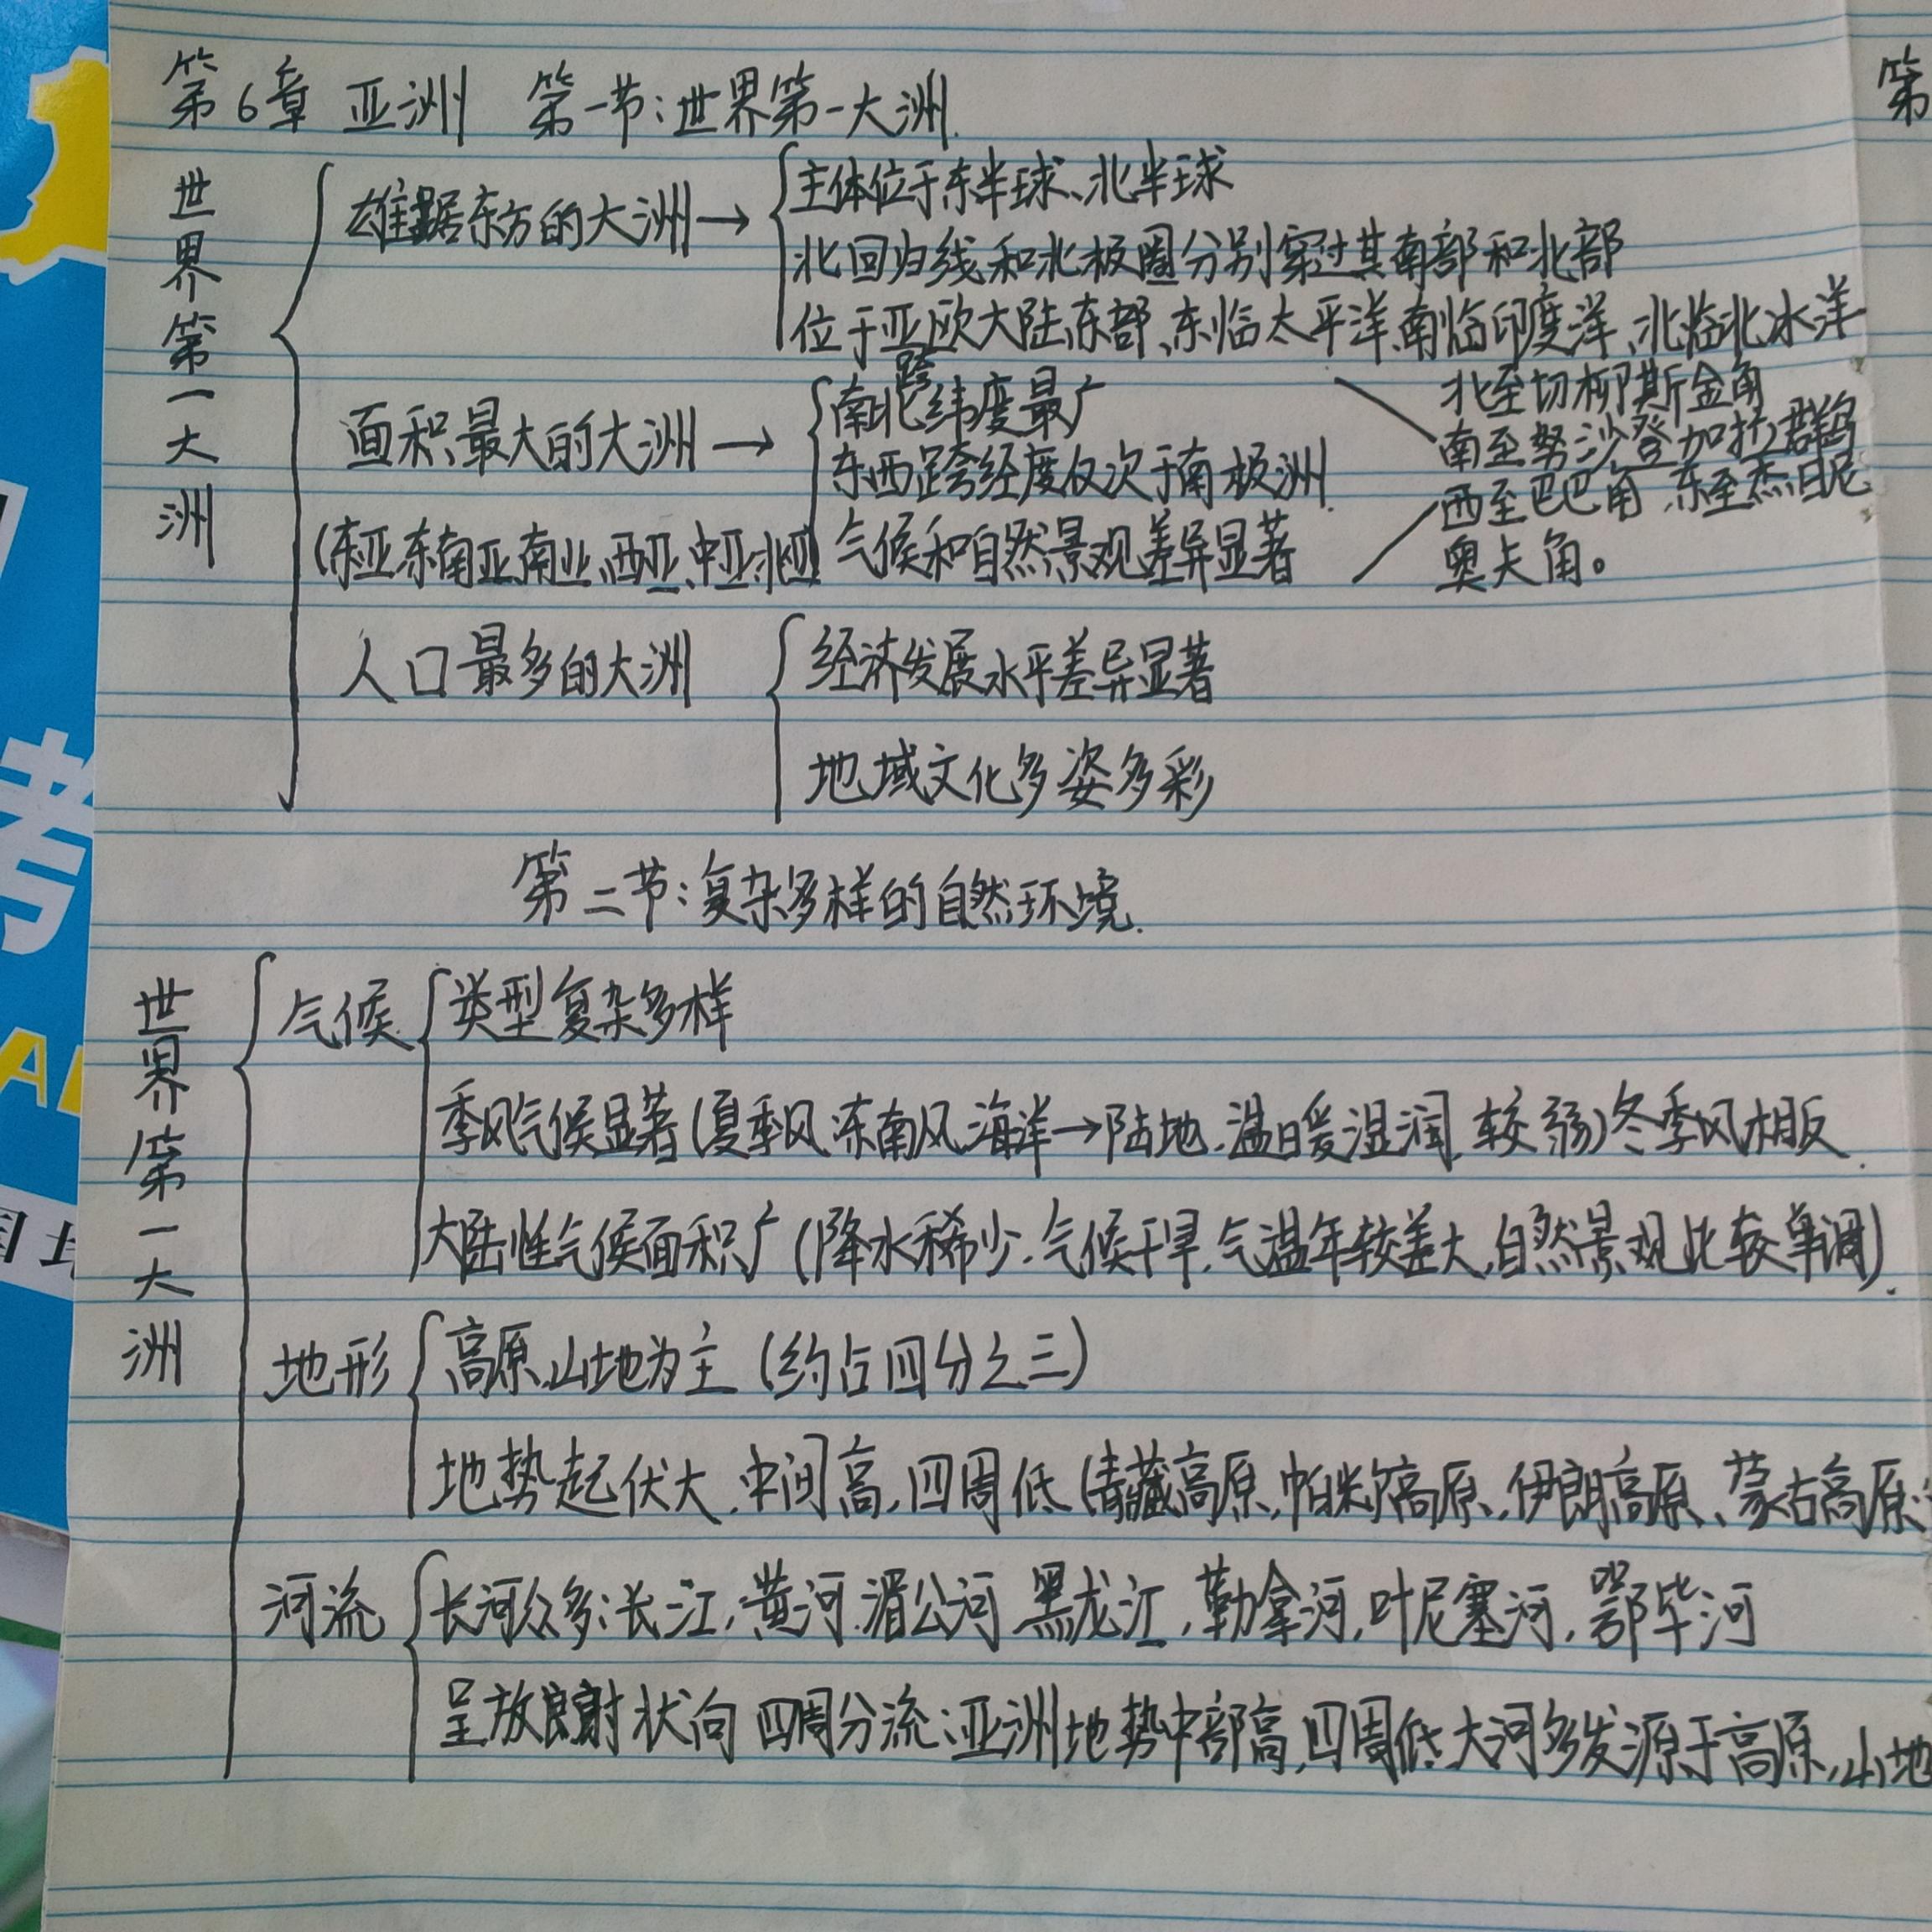 第6章 亚洲 第一节:世界第一大洲.
第
世界第一大洲
雄踞东方的大洲→
主体位于东半球、北半球
北回归线和北极圈分别穿过其南部和北部
位于亚欧大陆东部、东临太平洋、南临印度洋、北临北冰洋
面积最大的大洲→
(东亚、东南亚、南亚、西亚、中亚、北亚)
南北跨纬度最广
东西跨经度仅次于南极洲.
气候和自然景观差异显著
北至切柳斯金角
南至努沙登加拉群岛
西至巴巴角、东至杰日尼
奥夫角。
人口最多的大洲
经济发展水平差异显著
地域文化多姿多彩
第二节:复杂多样的自然环境.
世界第一大洲
气候
类型复杂多样
季风气候显著(夏季风、东南风、海洋→陆地、温暖湿润、较弱)冬季风相反.
大陆性气候面积广(降水稀少、气候干旱、气温年较差大、自然景观比较单调).
地形
高原、山地为主(约占四分之三)
地势起伏大、中间高、四周低(青藏高原、帕米尔高原、伊朗高原、蒙古高原
河流
长河众多:长江,黄河、湄公河、黑龙江,勒拿河,叶尼塞河,鄂毕河
呈放射状向四周分流:亚洲地势中部高、四周低、大河多发源于高原、山地